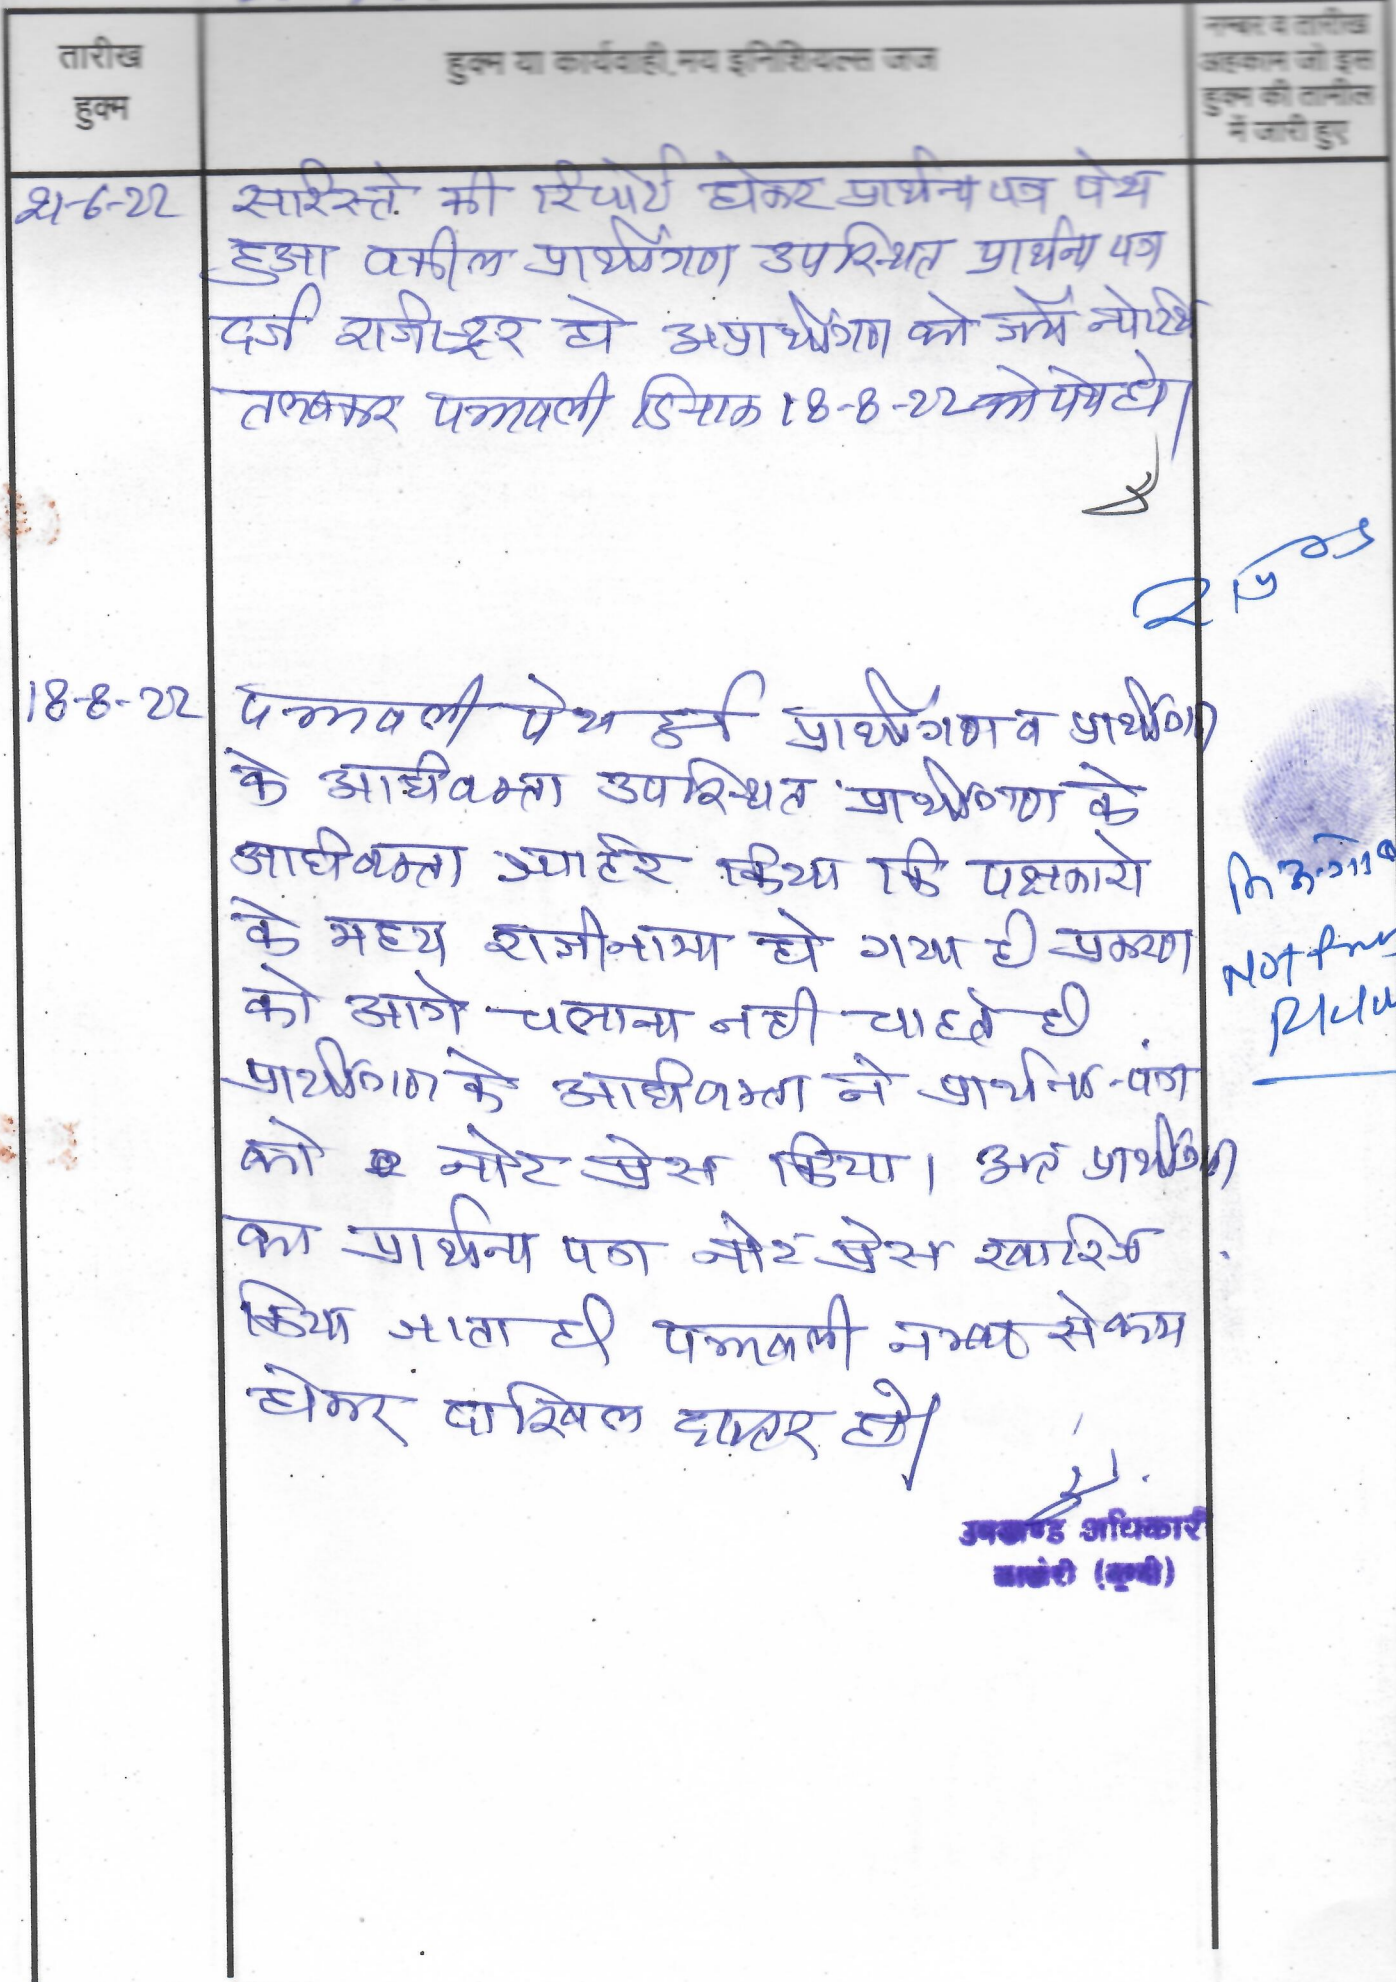 तारीख
हुक्म
हुक्म या कार्यवाही मय इनिशियल्स जज
नम्बर व तारीख
अहकाम जो इस
हुक्म की तामील
में जारी हुए
21-6-22
सरिस्ते की रिपोर्ट होकर प्रार्थना पत्र पेश
हुआ वकील प्रार्थीगण उपस्थित प्रार्थना पत्र
दर्ज रजिस्टर हो अप्रार्थीगण को जर्ये नोटिस
तलबकर पत्रावली दिनांक 18-8-22 को पेश हो।
18-8-22
पत्रावली पेश हुई प्रार्थीगण व प्रार्थीगण
के अधिवक्ता उपस्थित प्रार्थीगण के
अधिवक्ता जाहिर किया कि पक्षकारो
के मध्य राजीनामा हो गया है प्रकरण
को आगे चलाना नही चाहते है
प्रार्थीगण के अधिवक्ता ने प्रार्थना-पत्र
को नोट प्रेस किया। अत प्रार्थीगण
का प्रार्थना पत्र नोट प्रेस खारिज
किया जाता है पत्रावली नम्बर से कम
होकर दाखिल दफ्तर हो।
Not
उपखण्ड अधिकारी
लाखेरी (बून्दी)